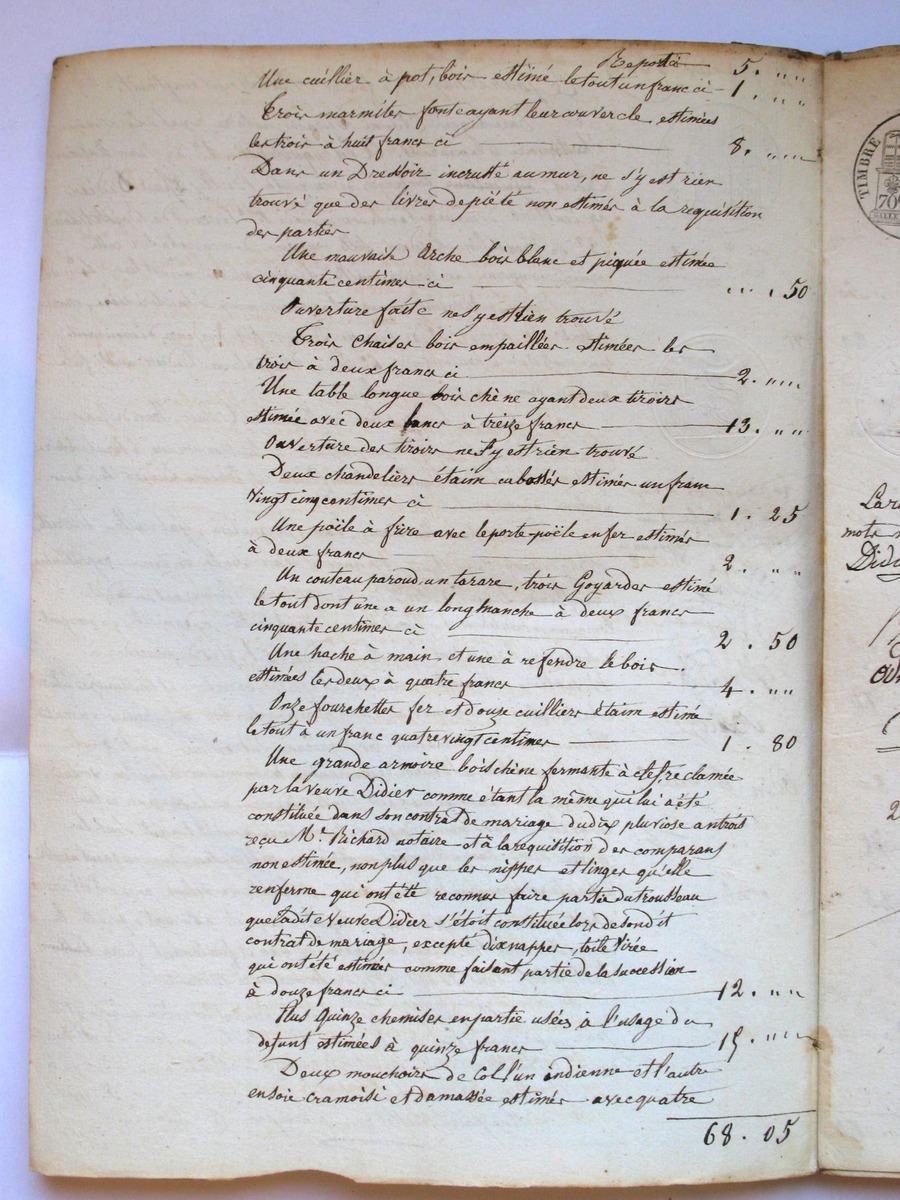 Reporté 5. " "
Une cuillier à pot, bois estimé le tout un franc ci - 1. " "
Trois marmites fonte ayant leur couvercle estimées
les trois à huit francs ci 8. " "
Dans un Dressoir incrusté au mur, ne s'y est rien
trouvé que des livres de piété non estimés à la requisition
des parties
Une mauvaise Arche bois blanc et piquée estimée
cinquante centimes ci " . 50
Ouverture faite ne s'y est rien trouvé
Trois chaises bois empaillées estimées les
trois à deux francs ci 2. " "
Une table longue bois chêne ayant deux tiroirs
estimée avec deux bancs à treize francs 13. " "
Ouverture des tiroirs ne s'y est rien trouvé
Deux chandeliers étaim cabossés estimés un franc
vingt cinq centimes ci 1. 25
Une poële à frire avec le porte-poële en fer estimés
à deux francs 2. " "
Un couteau paroud, un tarare, trois Goyardes estimé
le tout dont une a un long manche à deux francs
cinquante centimes ci 2. 50
Une hache à main et une à refendre le bois.
estimées les deux à quatre francs 4. " "
Onze fourchettes fer et douze cuilliers étaim estimé
le tout à un franc quatre vingt centimes 1. 80
Une grande armoire bois chêne fermante à clef, reclamée
par la veuve Didier comme étant la même qui lui a été
constituée dans son contrat de mariage du dix pluviose an trois
reçu Me. Richard notaire et à la réquisition des comparans
non estimée, non plus que les nippes et linges qu'elle
renferme qui ont été reconnus faire partie du trousseau
que ladite veuve Didier s'étoit constituée lors de son dit
contrat de mariage, excepté dix nappes, toile tirée
qui ont été estimées comme faisant partie de la succession
à douze francs ci 12. " "
Plus Quinze chemises en partie usées à l'usage du
defunt estimées à quinze francs 15. " "
Deux mouchoirs de Col l'un indienne et l'autre
en soie cramoisi et damassée estimés avec quatre
68. 05
TIMBRE
70
mots
Did